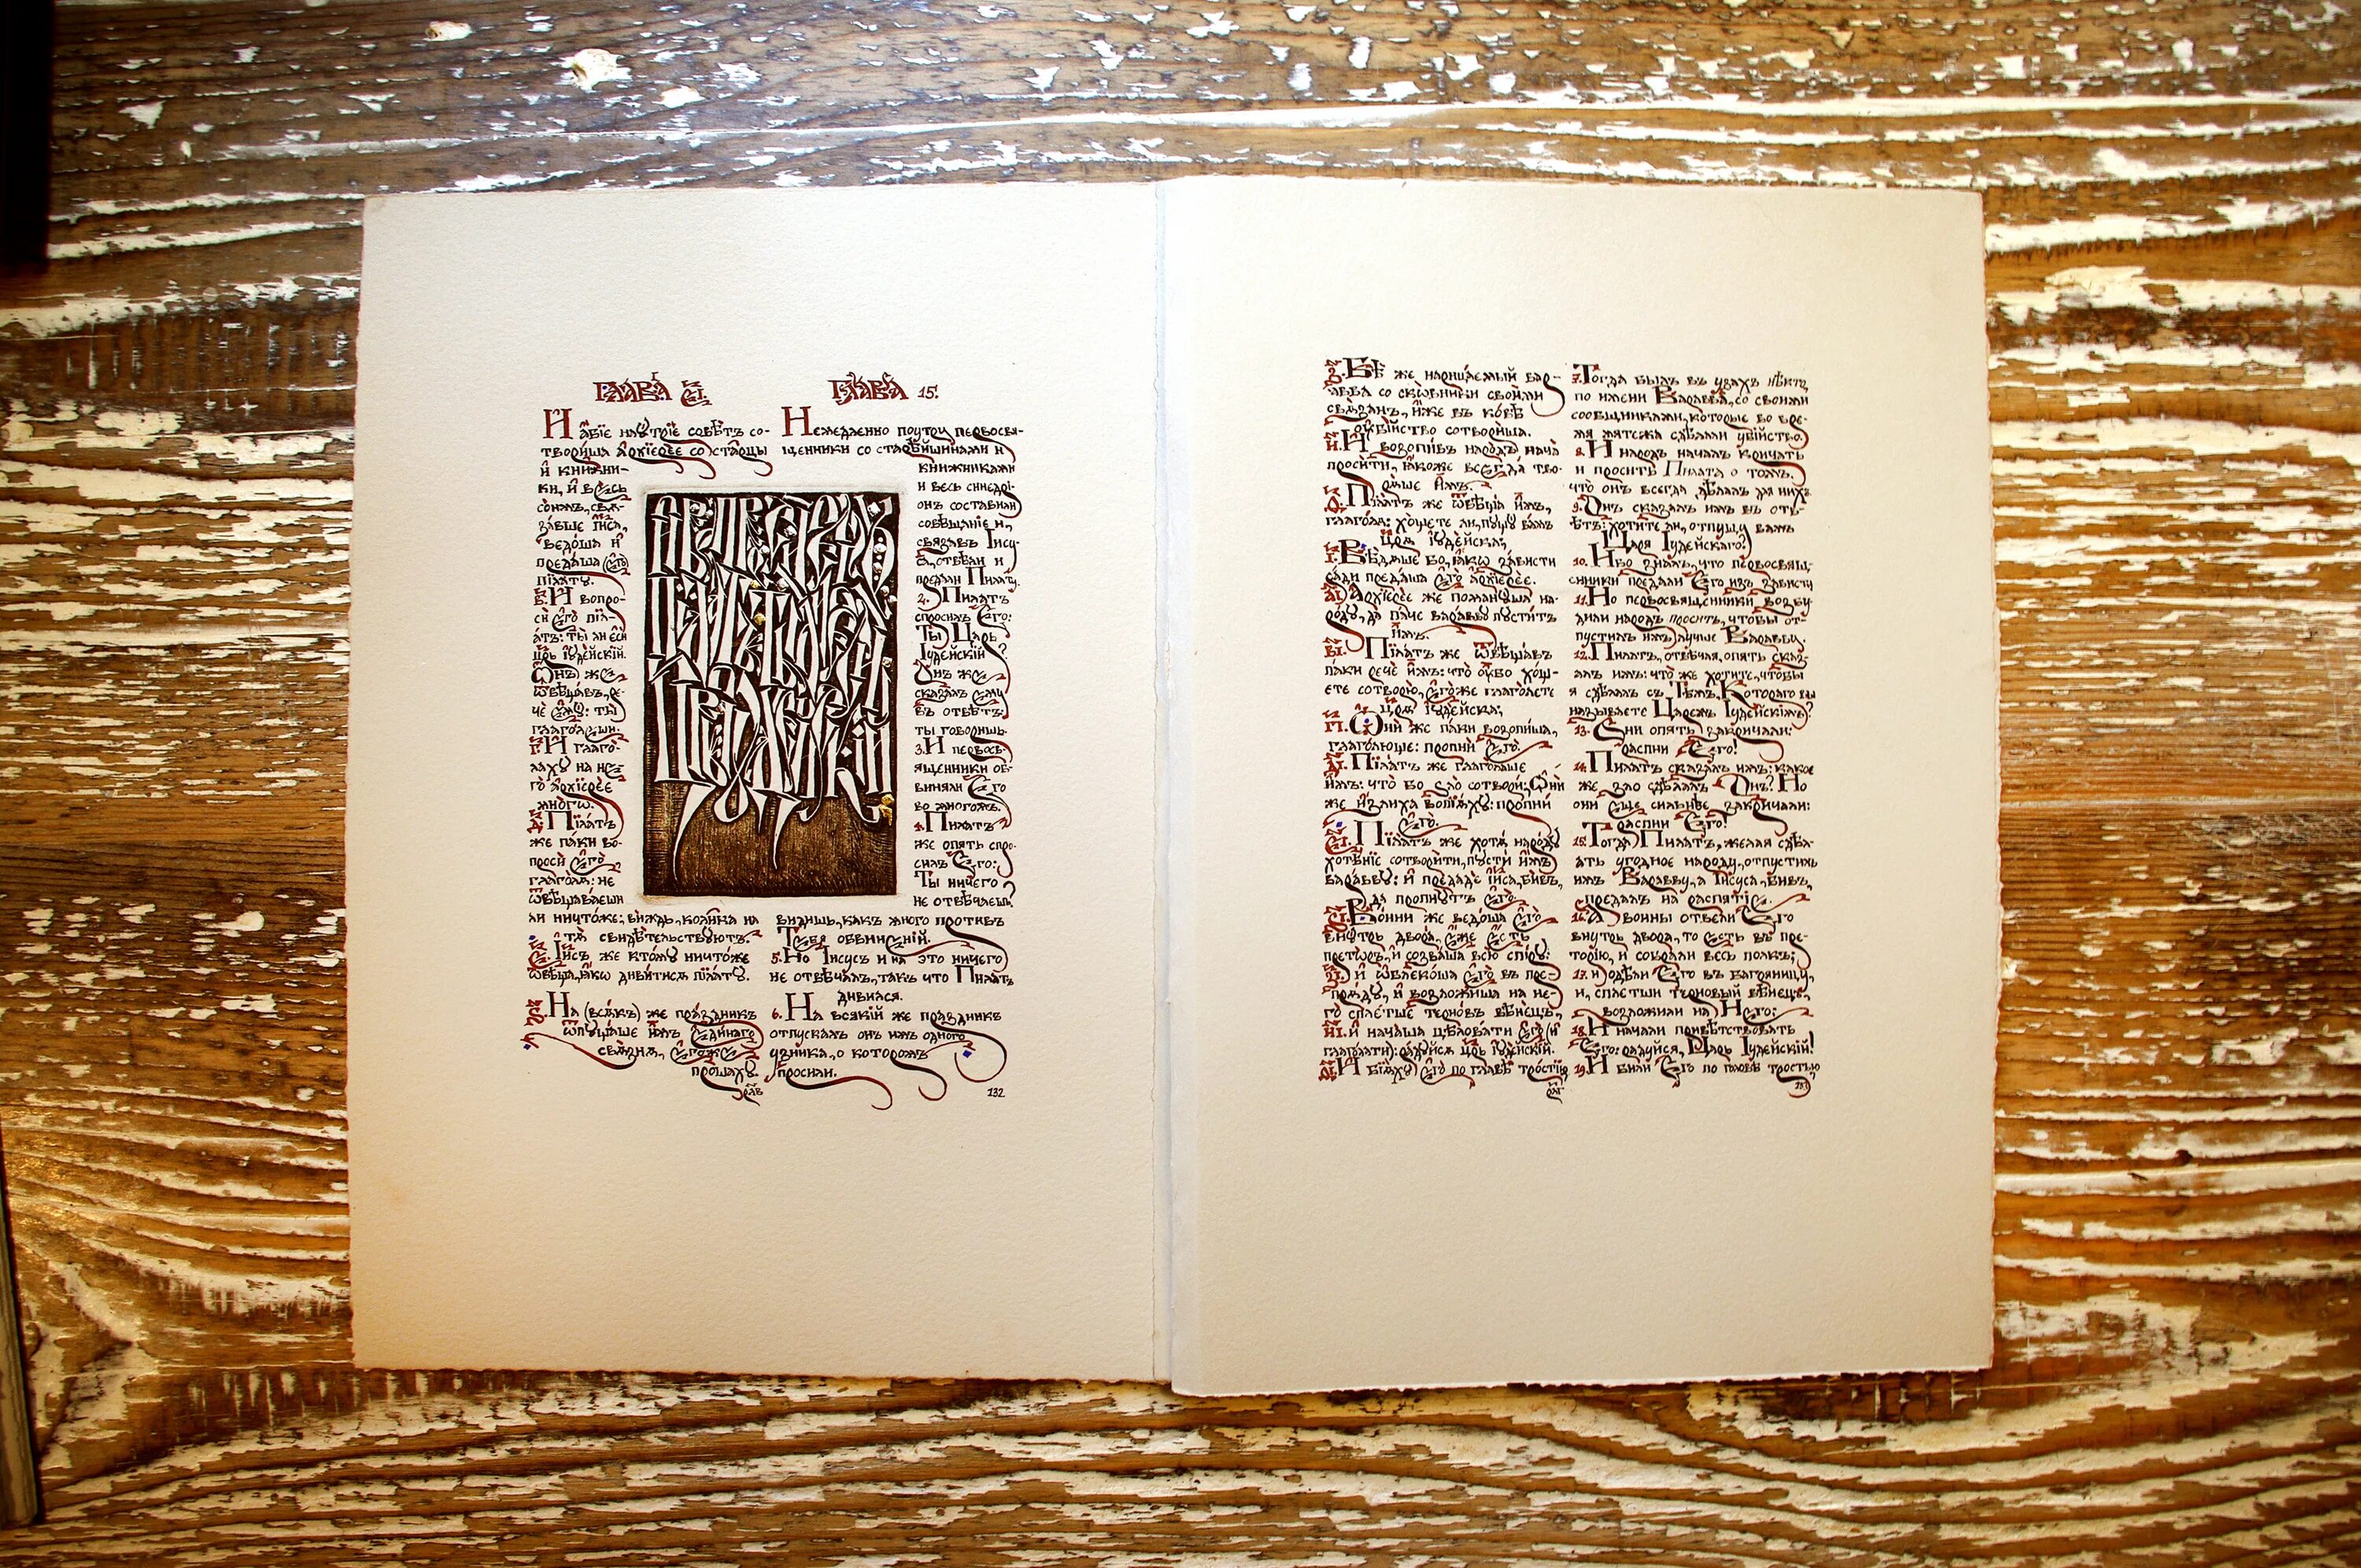 ГЛАВА є҃і.
И а҆́бїе наꙋ́трїе совѣ́тъ со-
твори́ша а҆рхїере́є со ста́рцы
и҆ кни́жни-
ки, и҆ ве́сь
со́нмъ, свѧ-
за́вше і҆и҃са,
ведо́ша и҆
преда́ша є҆го̀
пїла́тꙋ.
в҃. И вопро-
сѝ є҆го̀ пїла́-
атъ: ты́ ли є҆сѝ
цр҃ь і҆ꙋде́йскїй.
Ѻ҆́нъ же
ѿвѣща́въ, ре-
чѐ є҆мꙋ̀: ты̀
глаго́леши.
г҃. И глаго́-
лахꙋ на не-
го̀ а҆рхїере́є
мно́гѡ.
д҃. Пїла́тъ
же па́ки во-
просѝ є҆го̀
глаго́лѧ: не
ѿвѣщава́еши
ли ничто́же; ви́ждь, коли́ка на
тѧ̀ свидѣ́тельствꙋютъ.
є҃. І҆и҃съ же ктомꙋ̀ ничто́же
ѿвѣща̀, ꙗ҆́кѡ диви́тисѧ пїла́тꙋ.
ѕ҃. На (всѧ́къ) же пра́здникъ
ѿпꙋща́ше и҆̀мъ є҆ди́наго
свѧ́знѧ, є҆го́же
проша́хꙋ.
рл҃в
ГЛАВА 15.
Немедленно поутру первосвя-
щенники со старѣйшинами и
книжниками
и весь синедрі-
онъ составили
совѣщаніе и,
связавъ Іису-
са, отвели и
предали Пилату.
2. Пилатъ
спросилъ Его:
Ты Царь
Іудейскій?
Онъ же
сказалъ ему
въ отвѣтъ:
ты говоришь.
3. И первосв-
ященники об-
виняли Его
во многомъ.
4. Пилатъ
же опять спро-
силъ Его:
Ты ничего
не отвѣчаешь?
видишь, какъ много противъ
Тебя обвиненій.
5. Но Іисусъ и на это ничего
не отвѣчалъ, такъ что Пилатъ
дивился.
6. На всякій же праздникъ
отпускалъ онъ имъ одного
узника, о которомъ
просили.
132
з҃. Бѣ́ же нарица́емый вар-
а́вва со ско́вники свои́ми
свѧ́занъ, и҆̀же въ ко́вѣ
ᲂу҆бі́йство сотвори́ша.
и҃. И возопи́въ наро́дъ нача̀
проси́ти, ꙗ҆́коже всегда̀ тво-
рѧ́ше и҆̀мъ.
ѳ҃. Пїла́тъ же ѿвѣща̀ и҆̀мъ,
глаго́лѧ: хо́щете ли, пꙋщꙋ̀ ва́мъ
цр҃ѧ̀ і҆ꙋде́йска;
і҃. Вѣ́дѧше бо, ꙗ҆́кѡ за́висти
ра́ди преда́ша є҆го̀ а҆рхїере́є.
а҃і. А҆рхїере́є же поманꙋ́ша на-
ро́дꙋ, да па́че вара́ввꙋ пꙋ́ститъ
и҆̀мъ.
в҃і. Пїла́тъ же ѿвѣща́въ
па́ки речѐ и҆̀мъ: что̀ ᲂу҆̀бо хо́щ-
ете сотворю̀, є҆го́же глаго́лете
цр҃ѧ̀ і҆ꙋде́йска;
г҃і. Ѻ҆ни́ же па́ки возопи́ша,
глаго́люще: пропнѝ є҆го̀.
д҃і. Пїла́тъ же глаго́лаше
и҆̀мъ: что́ бо ѕло̀ сотворѝ; Ѻ҆ни́
же и҆́злиха вопїѧ́хꙋ: пропнѝ
є҆го̀.
є҃і. Пїла́тъ же хотѧ̀ наро́дꙋ
хотѣ́нїе сотвори́ти, пꙋстѝ и҆̀мъ
вара́ввꙋ: и҆ предадѐ і҆и҃са, би́въ,
да про́пнꙋтъ є҆го̀.
ѕ҃і. Во́ини же ведо́ша є҆го̀
внꙋ́трь двора̀, є҆́же є҆́сть
прето́ръ, и҆ созва́ша всю̀ спі́рꙋ:
з҃і. и҆ ѡ҆блеко́ша є҆го̀ въ пре-
прѧ́дꙋ, и҆ возложи́ша на не-
го̀ спле́тше терно́въ вѣне́цъ,
и҃і. и҆ нача́ша цѣлова́ти є҆го̀ (и҆
глаго́лати): ра́дꙋйсѧ, цр҃ь і҆ꙋде́йскїй.
ѳ҃і. И бїѧ́хꙋ є҆го̀ по главѣ̀ тро́стїю
рл҃г
7. Тогда былъ въ узахъ нѣкто
по имени Варавва, со своими
сообщниками, которые во вре-
мя мятежа сдѣлали убійство.
8. И народъ началъ кричать
и просить Пилата о томъ,
что онъ всегда дѣлалъ для нихъ.
9. Онъ сказалъ имъ въ отв-
ѣтъ: хотите ли, отпущу вамъ
Царя Іудейскаго?
10. Ибо зналъ, что первосвящ-
енники предали Его изъ зависти
11. Но первосвященники возбу-
дили народъ просить, чтобы от-
пустилъ имъ лучше Варавву.
12. Пилатъ, отвѣчая, опять сказ-
алъ имъ: что же хотите, чтобы
я сдѣлалъ съ Тѣмъ, Котораго вы
называете Царемъ Іудейскимъ?
13. Они опять закричали:
распни Его!
14. Пилатъ сказалъ имъ: какое
же зло сдѣлалъ Онъ? Но
они еще сильнѣе закричали:
распни Его!
15. Тогда Пилатъ, желая сдѣл-
ать угодное народу, отпустилъ
имъ Варавву, а Іисуса, бивъ,
предалъ на распятіе.
16. А воины отвели Его
внутрь двора, то есть въ пре-
торію, и собрали весь полкъ;
17. и одѣли Его въ багряницу,
и, сплетши терновый вѣнецъ,
возложили на Него;
18. И начали привѣтствовать
Его: радуйся, Царь Іудейскій!
19. И били Его по головѣ тростью
133